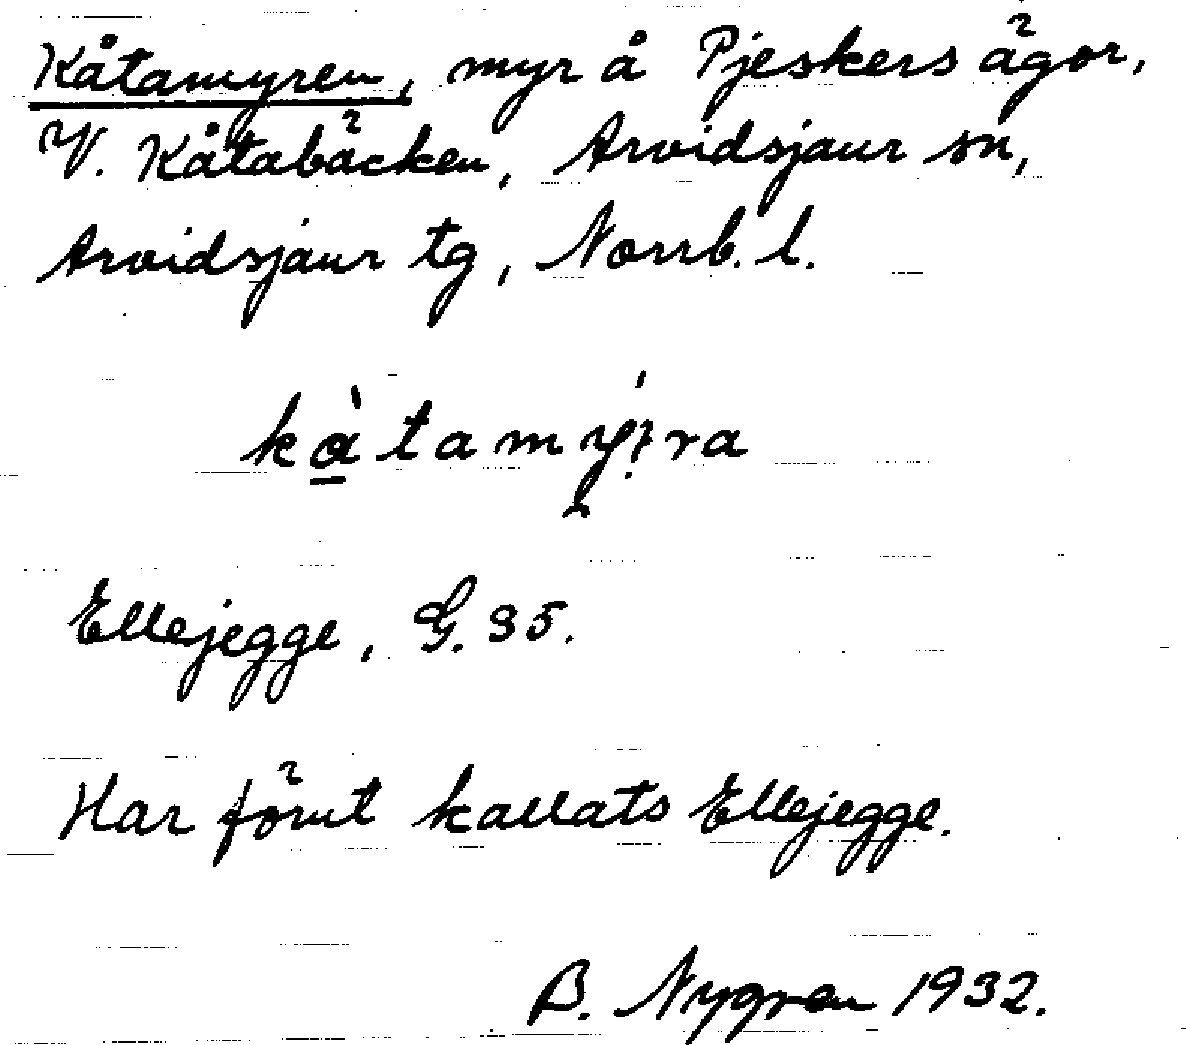 Kåtamyren, myr å Pjeskers ägor,
V. Kåtabäcken, Arvidsjaur sn,
Arvidsjaur tg, Norrb. l.
Ellejegge, G. 35.
Har förut kallats Ellejegge.
B. Nygren 1932.